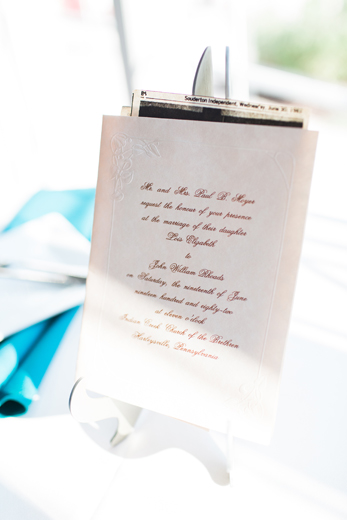 Souderton Independent, Wednesday, June 30, 1982
Mr. and Mrs. Paul B. Moyer
request the honour of your presence
at the marriage of their daughter
Lois Elizabeth
to
John William Rhoads
on Saturday, the nineteenth of June
nineteen hundred and eighty-two
at eleven o'clock
Indian Creek Church of the Brethren
Harleysville, Pennsylvania